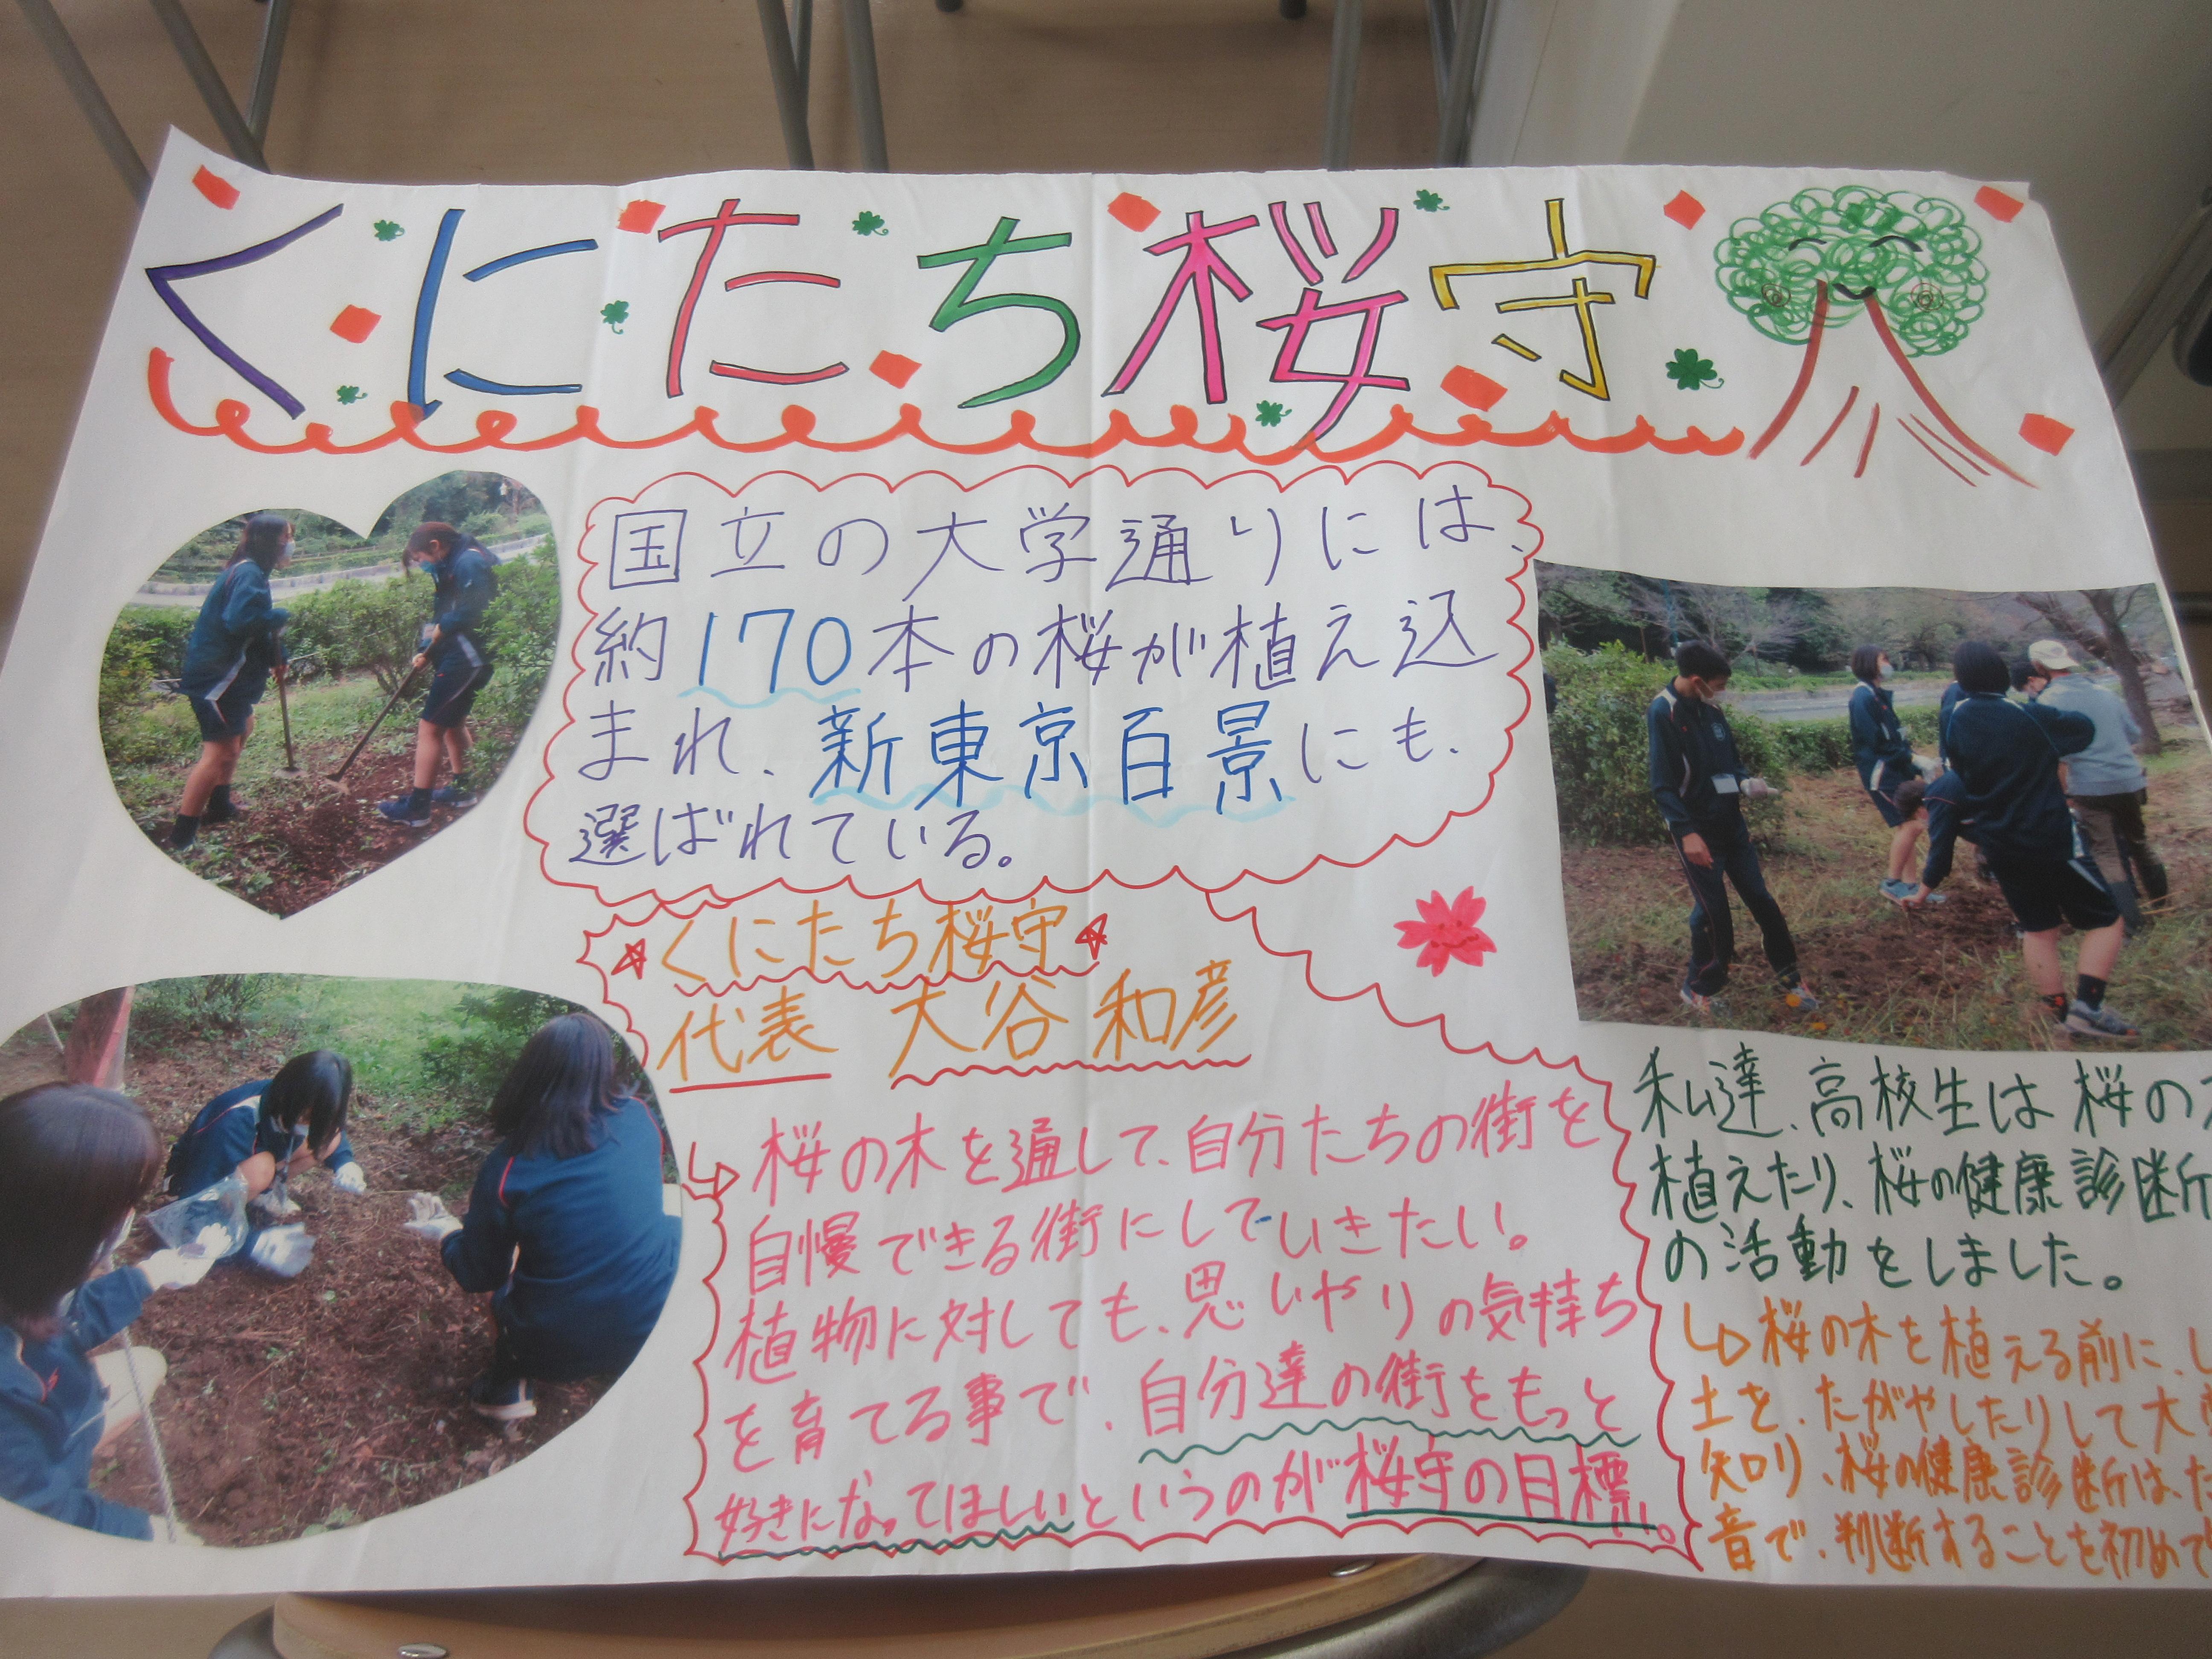 くにたち桜守
国立の大学通りには、
約170本の桜が植え込
まれ、新東京百景にも、
選ばれている。
くにたち桜守
代表 大谷 和彦
桜の木を通して、自分たちの街を
自慢できる街にしていきたい。
植物に対しても、思いやりの気持ち
を育てる事で、自分達の街をもっと
好きになってほしいというのが桜守の目標。
私達、高校生は桜の
植えたり、桜の健康診断
の活動をしました。
桜の木を植える前に、
土を、たがやしたりして大
知り、桜の健康診断は、
音で、判断することを初めて